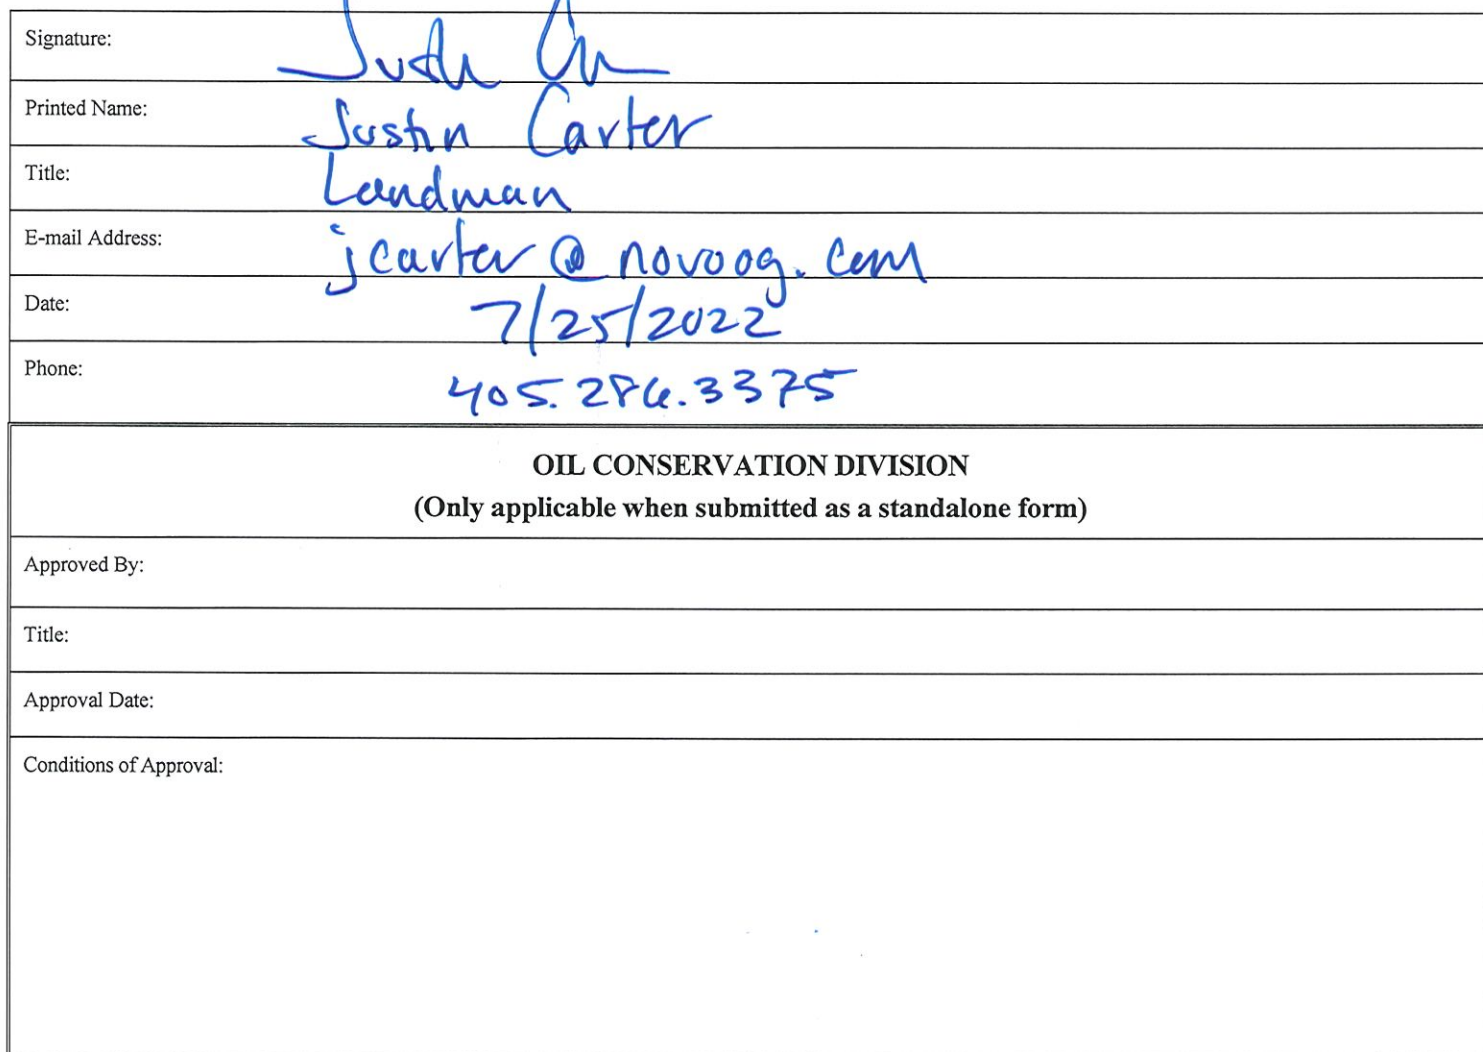 Signature:
Printed Name: Justin Carter
Title: Landman
E-mail Address: jcarter@novoog.com
Date: 7/25/2022
Phone: 405.286.3375
OIL CONSERVATION DIVISION
(Only applicable when submitted as a standalone form)
Approved By:
Title:
Approval Date:
Conditions of Approval: